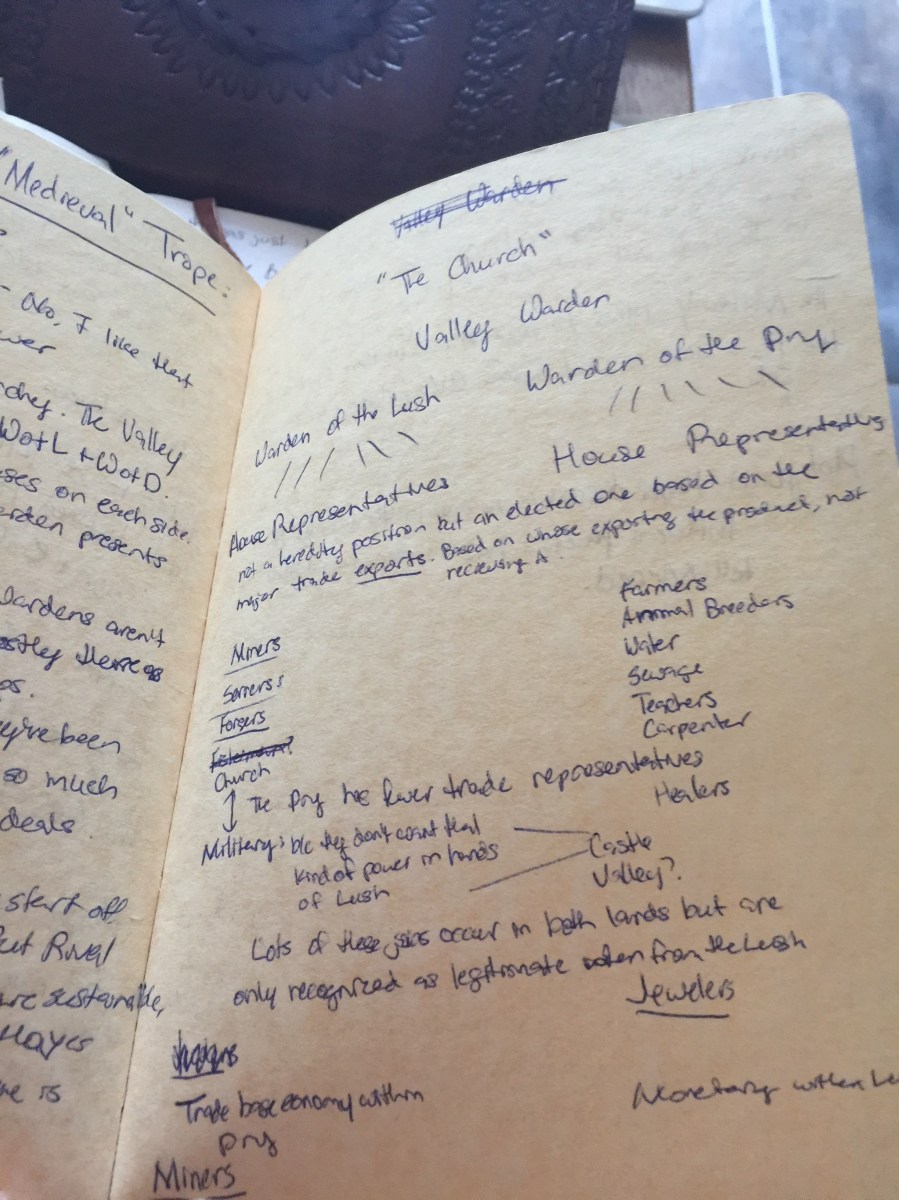 "Medieval" Trope:
- Also, I like that
The Valley
WotL + WotD.
on each side.
presents
Wardens aren't
mostly there as
they've been
so much
deals.
start off
Rival
are sustainable,
Hayes
is
Valley Warden
"The Church"
Valley Warden
Warden of the Lush
Warden of the Dry
House Representatives
House Representatives
not a heredity position but an elected one based on the
major trade exports. Based on whose exporting the product, not
recieving it.
Miners
Servers:
Forgers
Church
Farmers
Animal Breeders
Water
Sewage
Teachers
Carpenter
Healers
The Dry has fewer trade representatives
Military: b/c they don't want that
kind of power in hands
of Lush
Castle
Valley?
Lots of these jobs occur in both lands but are
only recognized as legitimate when from the Lush
Jewelers
Trade base economy within
Dry
Miners
Monetary within